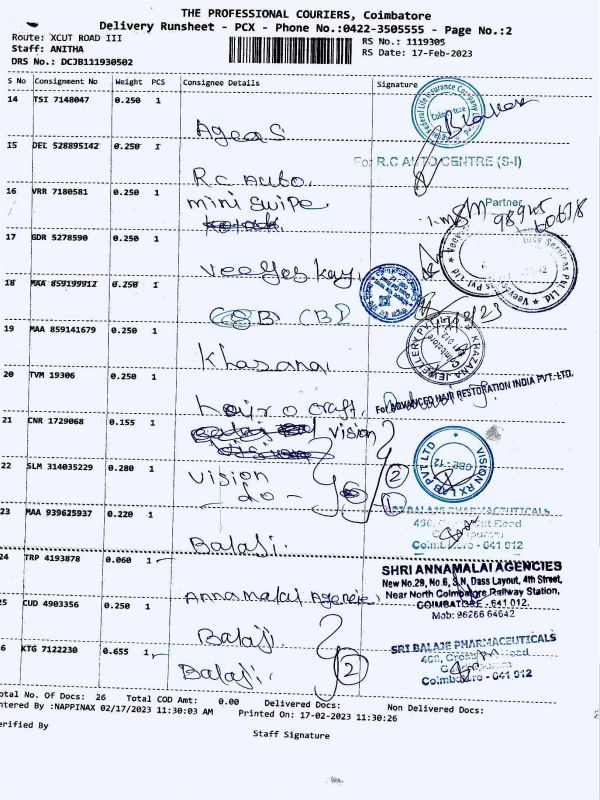 THE PROFESSIONAL COURIERS, Coimbatore
Delivery Runsheet - PCX - Phone No.:0422-3505555 - Page No.:2
Route: XCUT ROAD III
Staff: ANITHA
DRS No.: DCJB111930502
RS No.: 1119305
RS Date: 17-Feb-2023
S No Consignment No Weight PCS Consignee Details Signature
14 TSI 7148047 0.250 1
Ageas
15 DEL 528895142 0.250 1
For R.C AUTO CENTRE (S-I)
R.C Auto.
Partner
16 VRR 7180581 0.250 1
mini swipe
17 GDR 5278590 0.250 1
Veeyes kay.
18 MAA 859199912 0.250 1
CBD
19 MAA 859141679 0.250 1
Khasana
KHAZANA JEWELLERY PVT
20 TVM 19306 0.250 1
For ADVANCED HAIR RESTORATION INDIA PVT.LTD.
hair o craft
21 CNR 1729068 0.155 1
vision
VISION RX LAB PVT LTD
CBE-12
22 SLM 314035229 0.280 1
vision
- do -
2
23 MAA 939625937 0.220 1
SRI BALAJE PHARMACEUTICALS
Coimbatore - 641 012
Balaji.
24 TRP 4193878 0.060 1
SHRI ANNAMALAI AGENCIES
New No.29, No.6, S.N. Dass Layout, 4th Street,
Near North Coimbatore Railway Station,
COIMBATORE - 641 012.
Mob: 96266 64642
Annamalai Agencie
25 CUD 4903356 0.250 1
Balaji.
26 KTG 7122230 0.655 1
SRI BALAJE PHARMACEUTICALS
Coimbatore - 641 012
Balaji.
2
Total No. Of Docs: 26 Total COD Amt: 0.00 Delivered Docs: Non Delivered Docs:
Entered By :NAPPINAX 02/17/2023 11:30:03 AM Printed On: 17-02-2023 11:30:26
Verified By
Staff Signature